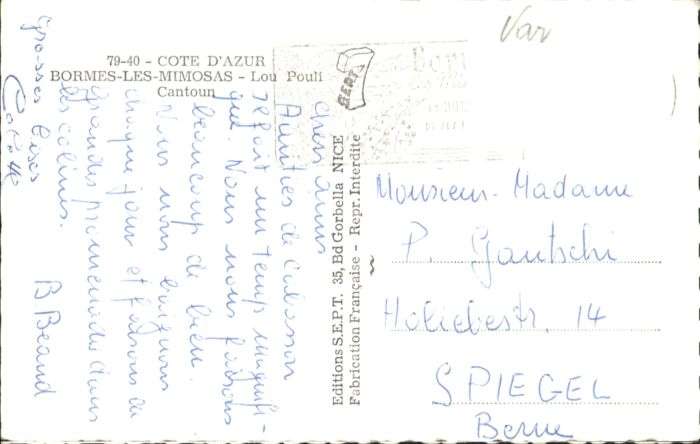 79-40 - COTE D'AZUR
BORMES-LES-MIMOSAS - Lou Pouli
Cantoun
Var
Chers amis
Amitiés de Cabasson
Il fait un temps magnifi-
que. Nous nous faisons
beaucoup de bien.
Nous nous baignons
chaque jour et faisons de
grandes promenades dans
les collines.
B Beaud
Grosses bises
Editions S.E.P.T. 35, Bd Gorbella NICE
Fabrication Française - Repr. Interdite
Monsieur-Madame
P. Gautschi
14
SPIEGEL
Berne